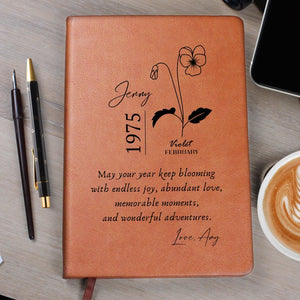 Jenny
1975
Violet
FEBRUARY
May your year keep blooming
with endless joy, abundant love,
memorable moments,
and wonderful adventures.
Love, Amy